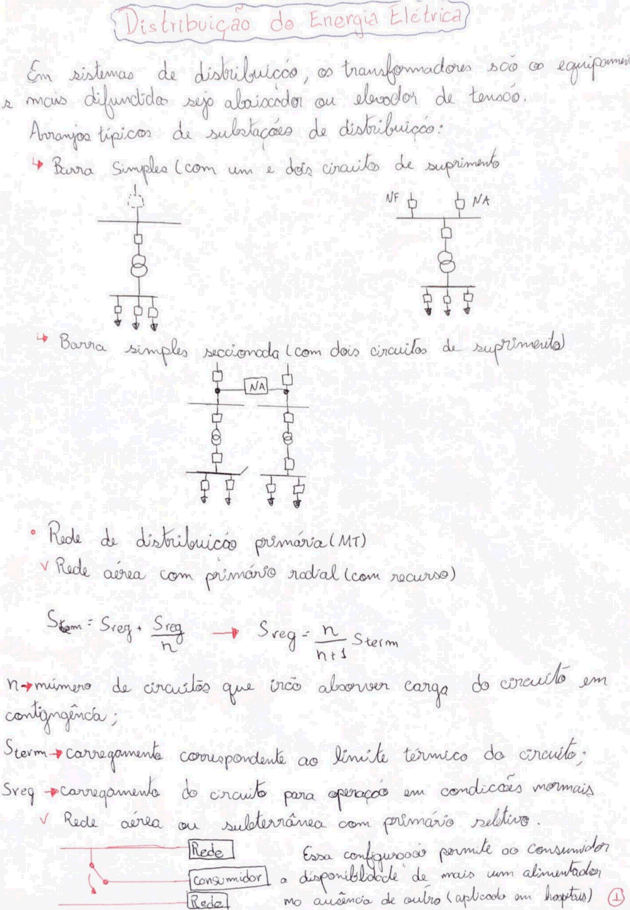 Distribuição de Energia Elétrica
Em sistemas de distribuição, os transformadores são os equipamen
s mais difundidos seja abaixador ou elevador de tensão.
Arranjos típicos de substações de distribuição:
↳ Barra Simples (com um e dois circuitos de suprimento
NF NA
↳ Barra simples seccionada (com dois circuitos de suprimento)
NA
• Rede de distribuição primária (MT)
v Rede aérea com primário radial (com recurso)
Sterm = Sreg + Sreg/n → Sreg = n/n+1 Sterm
n → número de circuitos que irão absorver carga do circuito em
contigngência;
Sterm → carregamento correspondente ao limite térmico do circuito;
Sreg → carregamento do circuito para operação em condições normais
v Rede aérea ou subterrânea com primário seletivo.
Rede Essa configuração permite ao consumidor
consumidor a disponibilidade de mais um alimentador
Rede na ausência de outro (aplicado em hospitais) 1